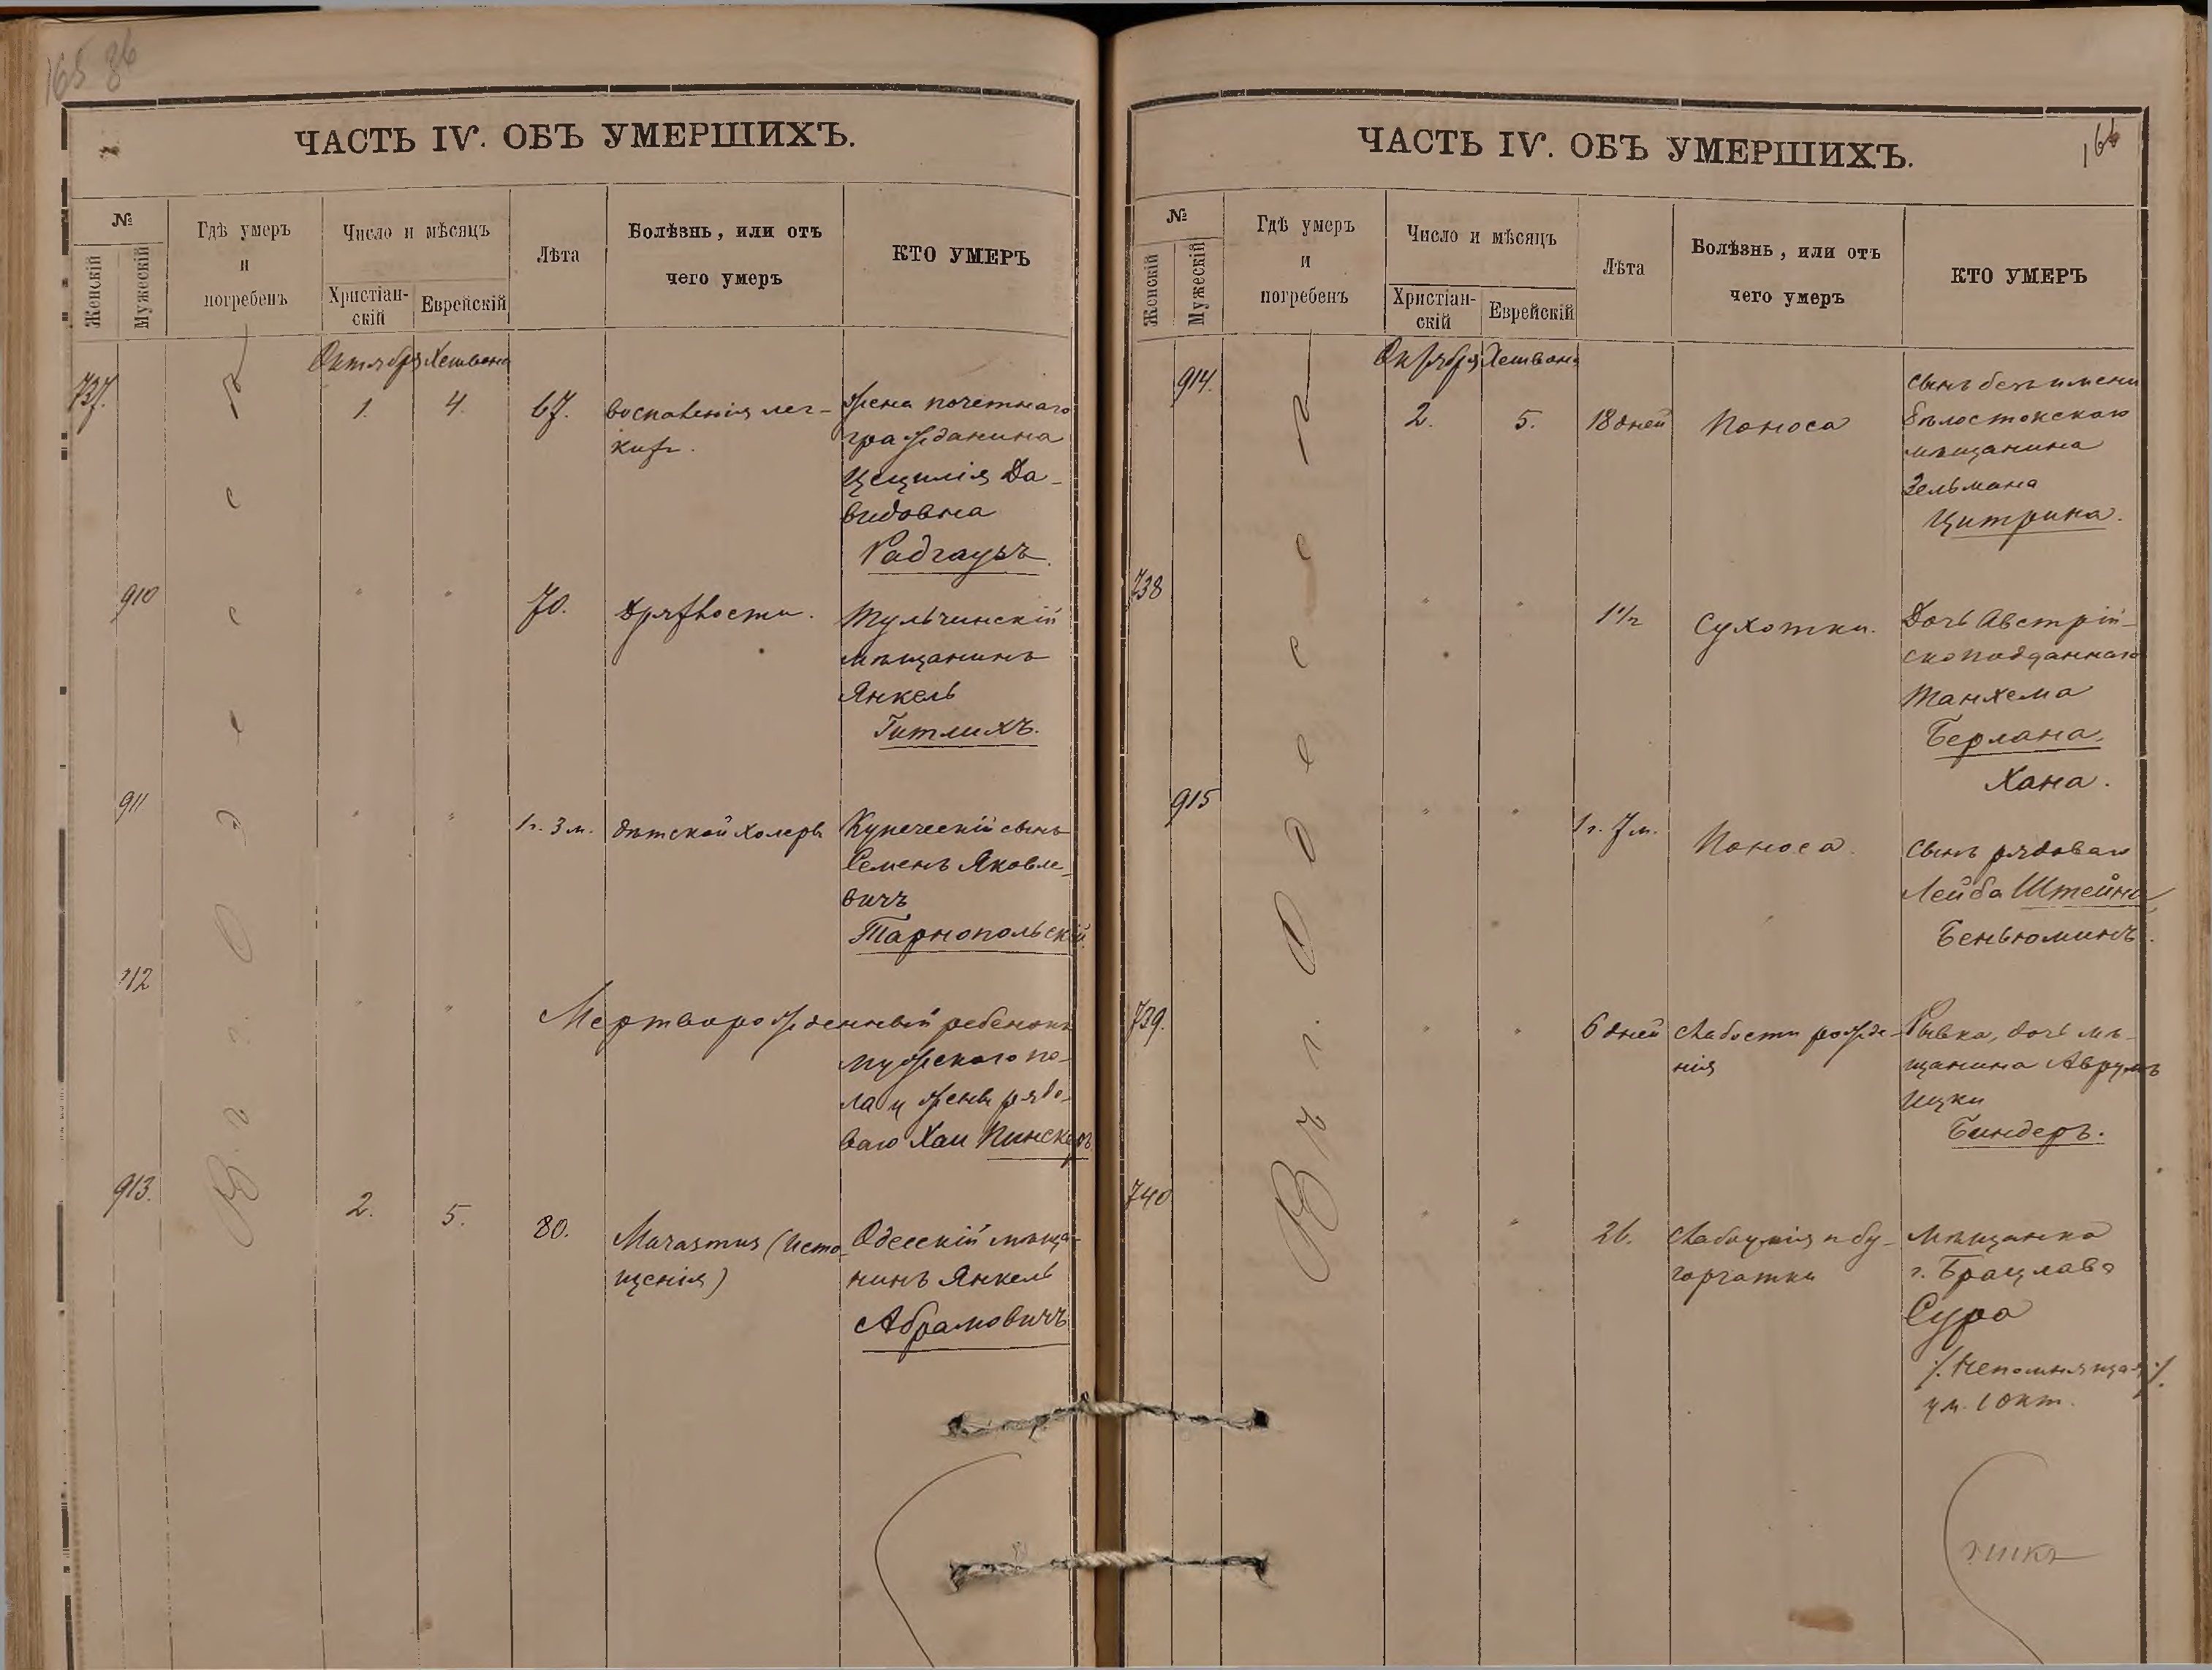 165 86
ЧАСТЬ IV. ОБЪ УМЕРШИХЪ.
№
Женскій
Мужескій
Гдѣ умеръ
и
погребенъ
Число и мѣсяцъ
Христіан-
скій
Еврейскій
Лѣта
Болѣзнь, или отъ
чего умеръ
КТО УМЕРЪ
Въ г. Одессѣ
Октября Хешвона
737.
1. 4. 67.
воспаленія лег-
кихъ.
жена почетнаго
гражданина
Цецилія Да-
видовна
Радгаузъ.
910
" " 70.
Дряхлости.
Тульчинскій
мѣщанинъ
Янкель
Гитлихъ.
911
" " 1 г. 3 м.
дѣтской холеры
Купеческій сынъ
Семенъ Яковле-
вичъ
Тарнопольскій.
912
" "
Мертворожденный ребенокъ
мужского по-
ла у жены рядо-
ваго Хаи Пинскеръ
913.
2. 5. 80.
Marasmus (Исто-
щенія)
Одесскій мѣща-
нинъ Янкель
Абрамовичъ
ЧАСТЬ IV. ОБЪ УМЕРШИХЪ.
166
№
Женскій
Мужескій
Гдѣ умеръ
и
погребенъ
Число и мѣсяцъ
Христіан-
скій
Еврейскій
Лѣта
Болѣзнь, или отъ
чего умеръ
КТО УМЕРЪ
Въ г. Одессѣ
Октября Хешвона
914.
2. 5. 18 дней
Поноса
сынъ безъ имени
бѣлостокскаго
мѣщанина
Зельмана
Цитрина.
738
" " 1 1/2
Сухотки.
Дочь Австрій-
скоподданнаго
Танхема
Берлана,
Хана.
915
" " 1 г. 7 м.
Поноса.
сынъ рядоваго
Лейба Штейна,
Беньюминъ.
739.
" " 6 дней
слабости рожде-
нія
Рывка, дочь мѣ-
щанина Аврумъ
Ицки
Биндеръ.
740
" " 26.
бу-
горчатки
мѣщанка
г. Брацлава
Сура
/. Непомнящая ./.
ум. 1 окт.